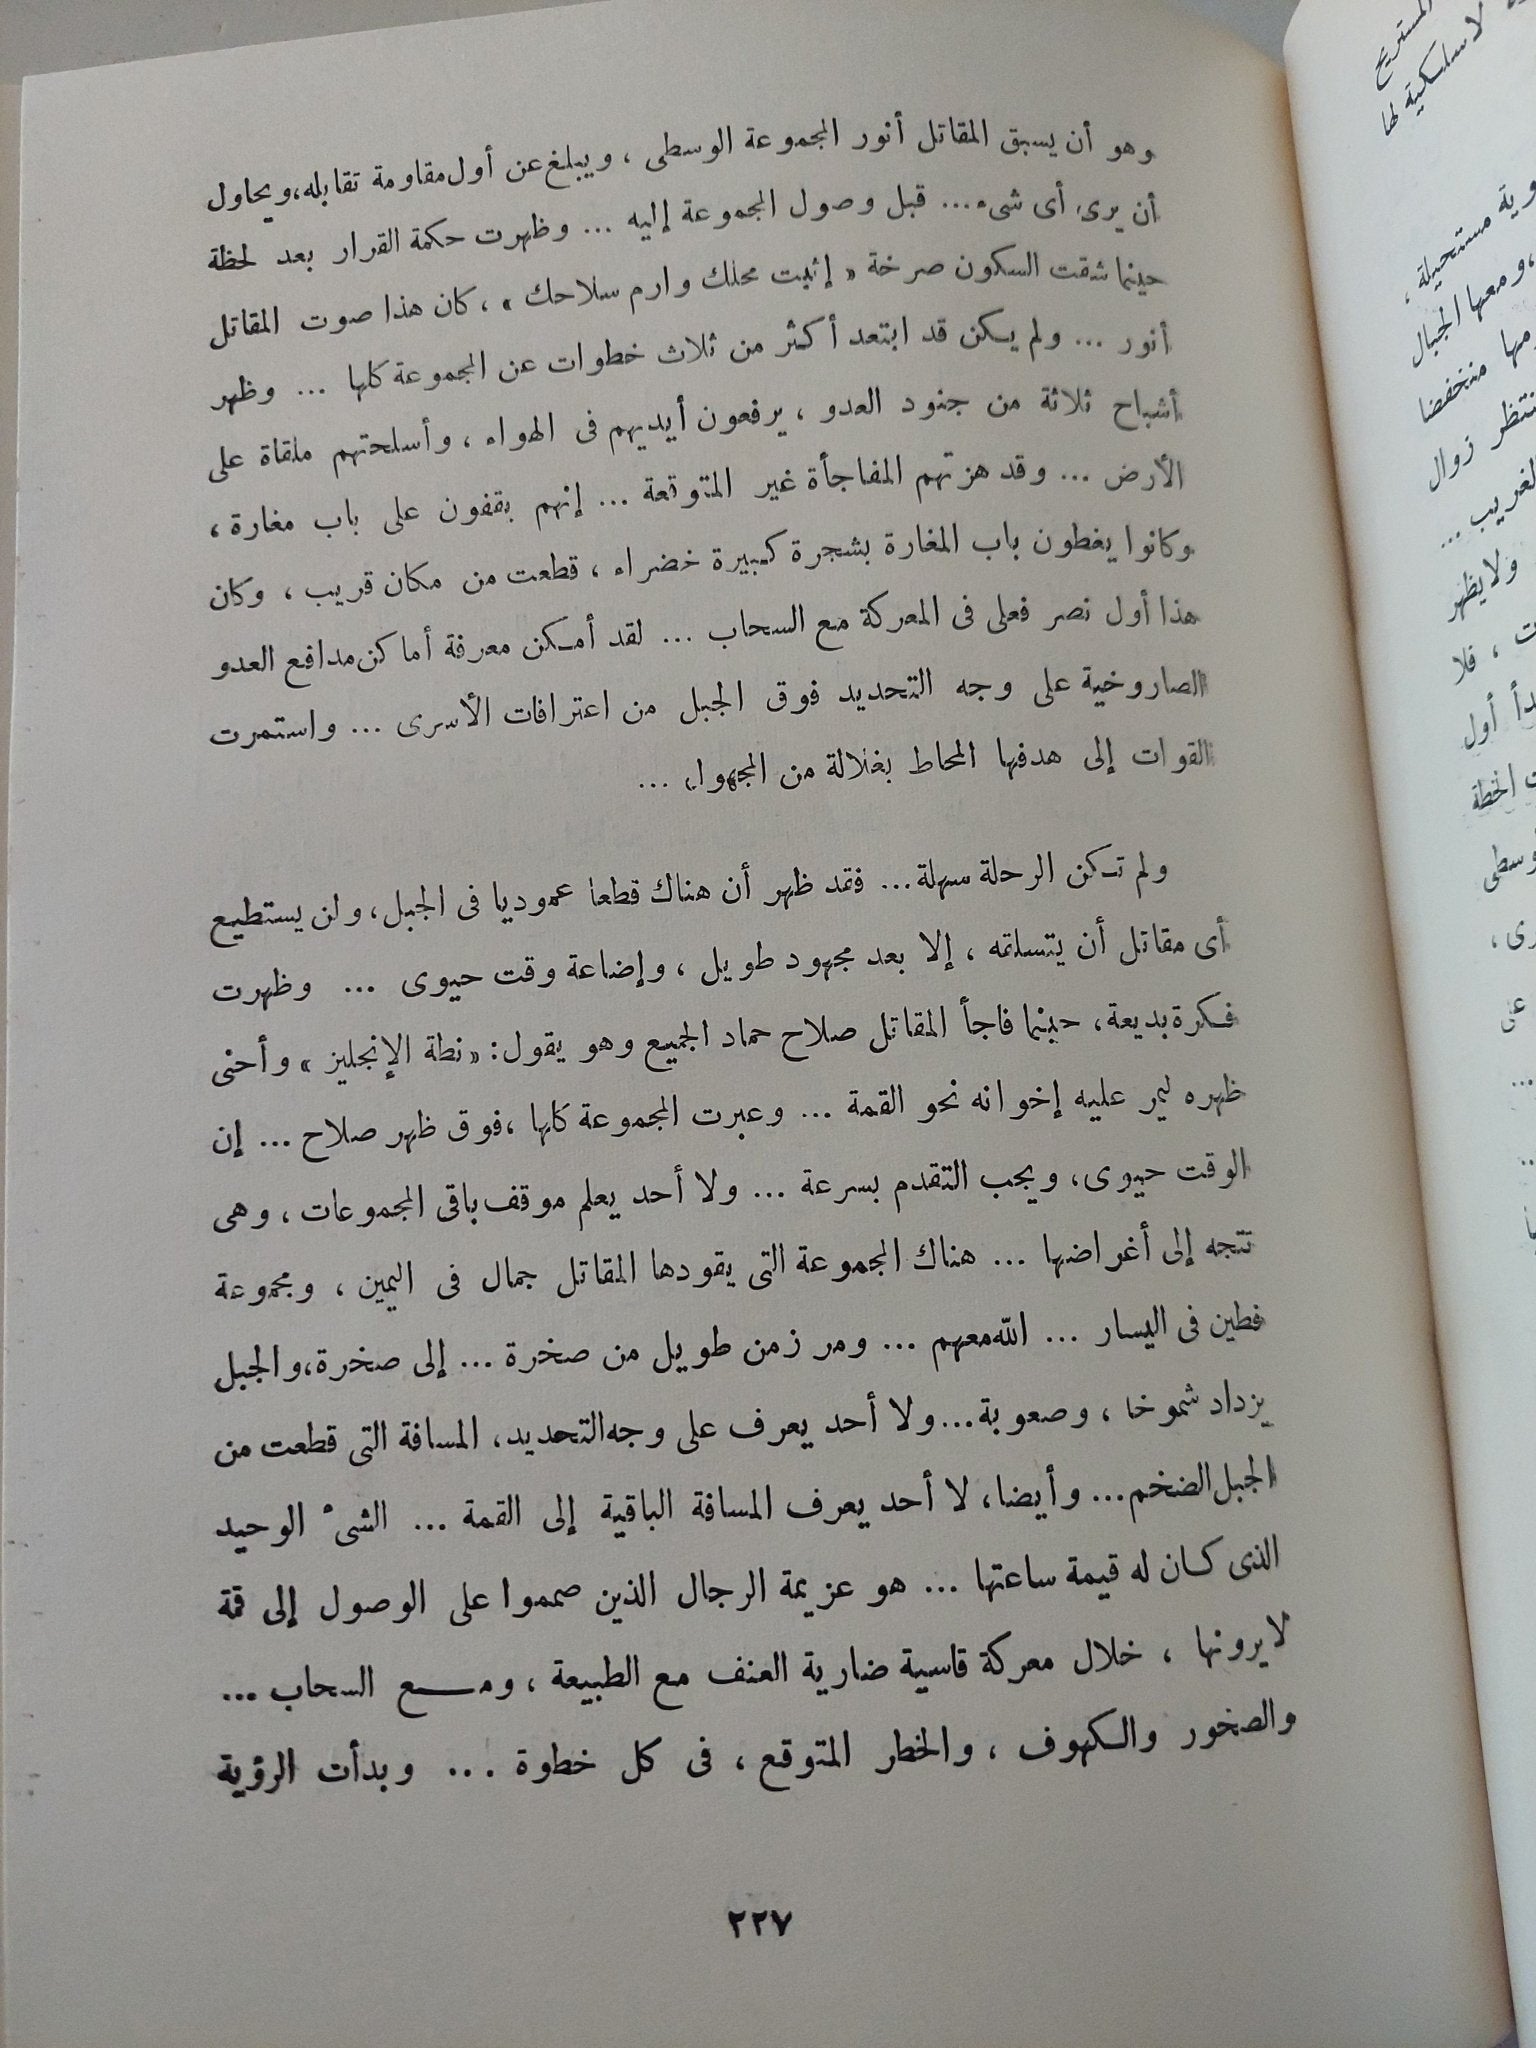 وهو أن يسبق المقاتل أنور المجموعة الوسطى ، ويبلغ عن أول مقاومة تقابله، ويحاول
أن يرى أى شىء... قبل وصول المجموعة إليه ... وظهرت حكمة القرار بعد لحظة
حينما شقت السكون صرخة « إثبت محلك وارم سلاحك » ، كان هذا صوت المقاتل
أنور ... ولم يكن قد ابتعد أكثر من ثلاث خطوات عن المجموعة كلها ... وظهر
أشباح ثلاثة من جنود العدو ، يرفعون أيديهم فى الهواء ، وأسلحتهم ملقاة على
الأرض ... وقد هزتهم المفاجأة غير المتوقعة ... إنهم يقفون على باب مغارة ،
وكانوا يغطون باب المغارة بشجرة كبيرة خضراء ، قطعت من مكان قريب ، وكان
هذا أول نصر فعلى فى المعركة مع السحاب ... لقد أمكن معرفة أماكن مدافع العدو
الصاروخية على وجه التحديد فوق الجبل من اعترافات الأسرى ... واستمرت
القوات إلى هدفها المحاط بغلالة من المجهول ...
ولم تكن الرحلة سهلة... فقد ظهر أن هناك قطعا عموديا فى الجبل، ولن يستطيع
أى مقاتل أن يتسلقه ، إلا بعد مجهود طويل ، وإضاعة وقت حيوى ... وظهرت
فكرة بديعة، حينما فاجأ المقاتل صلاح حماد الجميع وهو يقول: « نطة الإنجليز » وأحنى
ظهره ليمر عليه إخوانه نحو القمة ... وعبرت المجموعة كلها ،فوق ظهر صلاح ... إن
الوقت حيوى، ويجب التقدم بسرعة ... ولا أحد يعلم موقف باقى المجموعات ، وهى
تتجه إلى أغراضها ... هناك المجموعة التى يقودها المقاتل جمال فى اليمين ، ومجموعة
فطين فى اليسار ... الله معهم ... ومر زمن طويل من صخرة ... إلى صخرة،والجبل
يزداد شموخا ، وصعوبة...ولا أحد يعرف على وجه التحديد، المسافة التى قطعت من
الجبل الضخم... وأيضا، لا أحد يعرف المسافة الباقية إلى القمة ... الشىْ الوحيد
الذى كان له قيمة ساعتها ... هو عزيمة الرجال الذين صمموا على الوصول إلى قمة
لا يرونها ، خلال معركة قاسية ضارية العنف مع الطبيعة ، ومـــع السحاب ...
والصخور والكهوف ، والخطر المتوقع ، فى كل خطوة ... وبدأت الرؤية
٢٢٧
المستريح
لاسلكية لها
مستحيلة ،
،ومعها الجبال
منخفضا
زوال
الغريب ...
ولا يظهر
، فلا
أول
الخطة
على
...